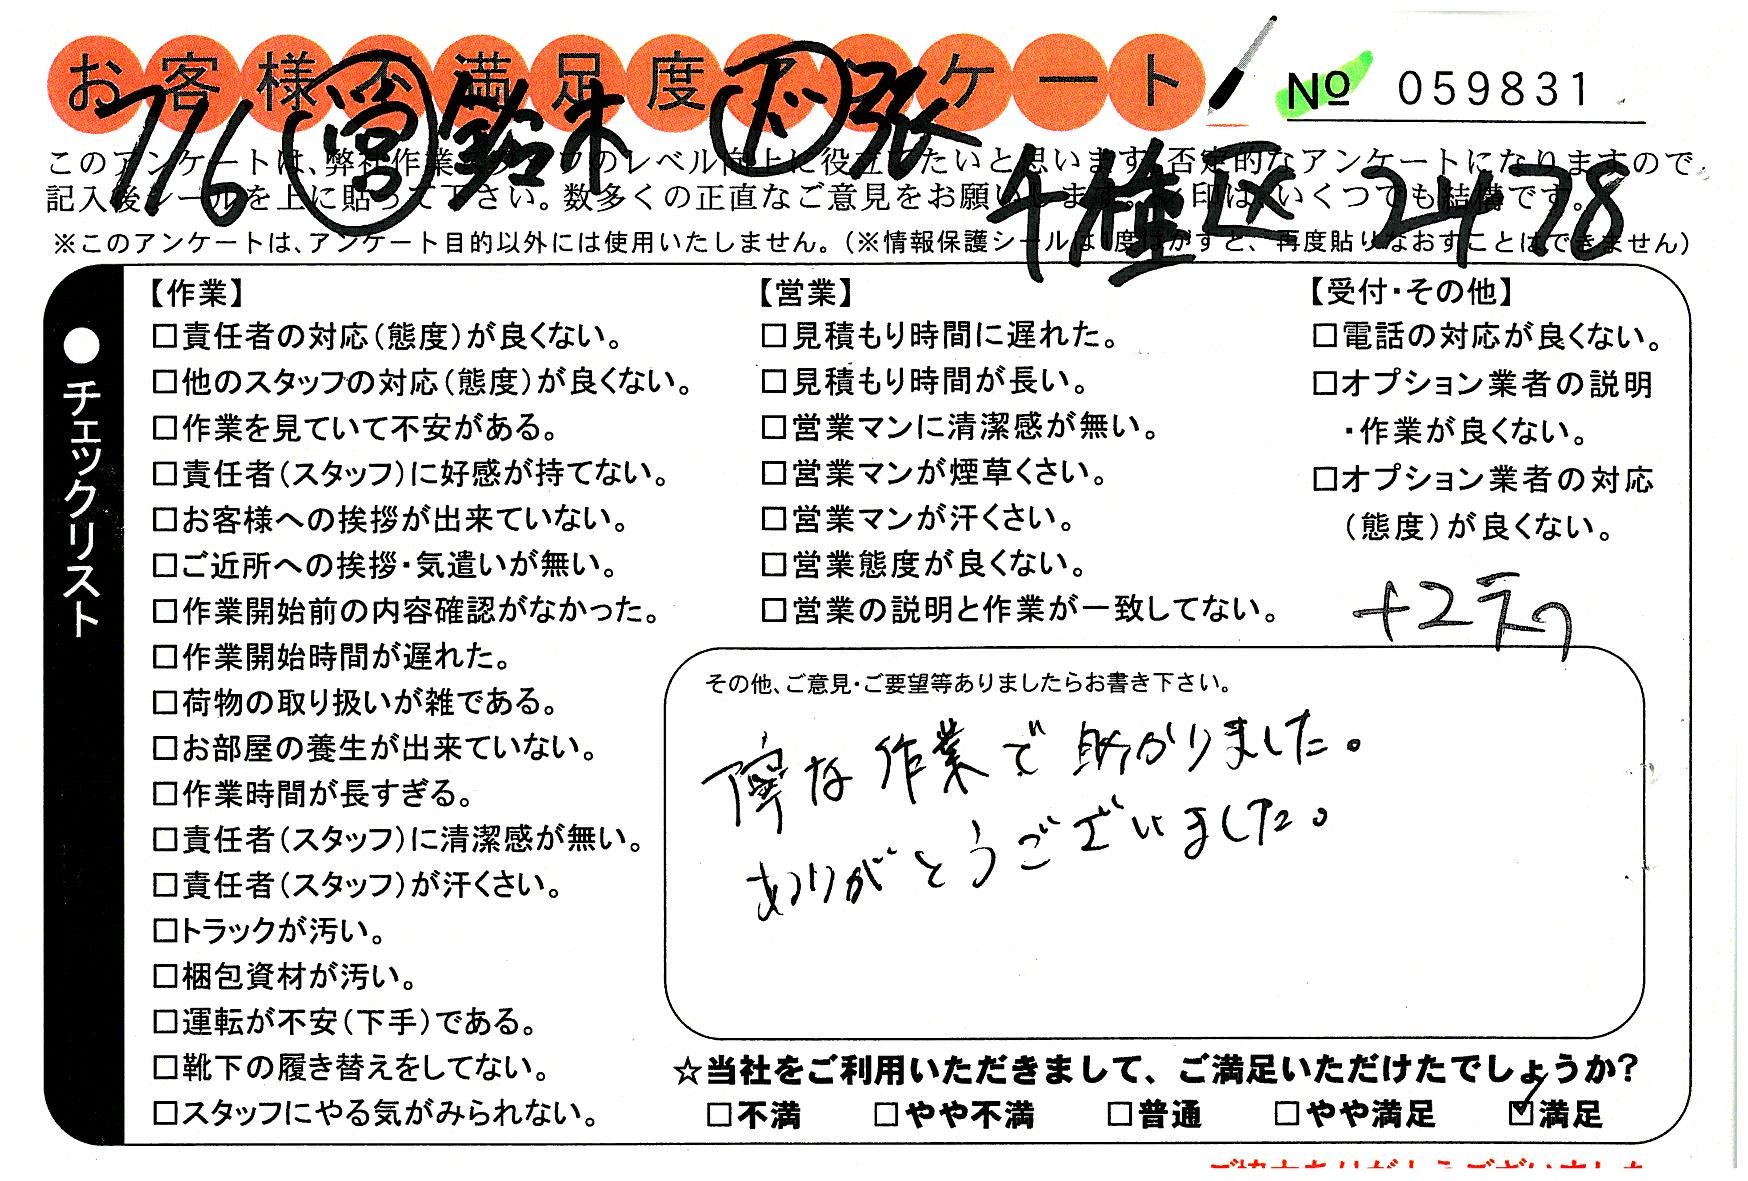 お客様不満足度アンケート
№ 059831
7/6 営 鈴木 下 張
千種区 2478
このアンケートは、弊社作業スタッフのレベル向上に役立てたいと思います。否定的なアンケートになりますので、
記入後シールを上に貼って下さい。数多くの正直なご意見をお願いします。レ印は、いくつでも結構です。
※このアンケートは、アンケート目的以外には使用いたしません。(※情報保護シールは1度はがすと、再度貼りなおすことはできません)
●チェックリスト
【作業】
□責任者の対応(態度)が良くない。
□他のスタッフの対応(態度)が良くない。
□作業を見ていて不安がある。
□責任者(スタッフ)に好感が持てない。
□お客様への挨拶が出来ていない。
□ご近所への挨拶・気遣いが無い。
□作業開始前の内容確認がなかった。
□作業開始時間が遅れた。
□荷物の取り扱いが雑である。
□お部屋の養生が出来ていない。
□作業時間が長すぎる。
□責任者(スタッフ)に清潔感が無い。
□責任者(スタッフ)が汗くさい。
□トラックが汚い。
□梱包資材が汚い。
□運転が不安(下手)である。
□靴下の履き替えをしてない。
□スタッフにやる気がみられない。
【営業】
□見積もり時間に遅れた。
□見積もり時間が長い。
□営業マンに清潔感が無い。
□営業マンが煙草くさい。
□営業マンが汗くさい。
□営業態度が良くない。
□営業の説明と作業が一致してない。
【受付・その他】
□電話の対応が良くない。
□オプション業者の説明
・作業が良くない。
□オプション業者の対応
(態度)が良くない。
その他、ご意見・ご要望等ありましたらお書き下さい。
丁寧な作業で助かりました。
ありがとうございました。
☆当社をご利用いただきまして、ご満足いただけたでしょうか?
□不満 □やや不満 □普通 □やや満足 ☑満足
ご協力ありがとうございました